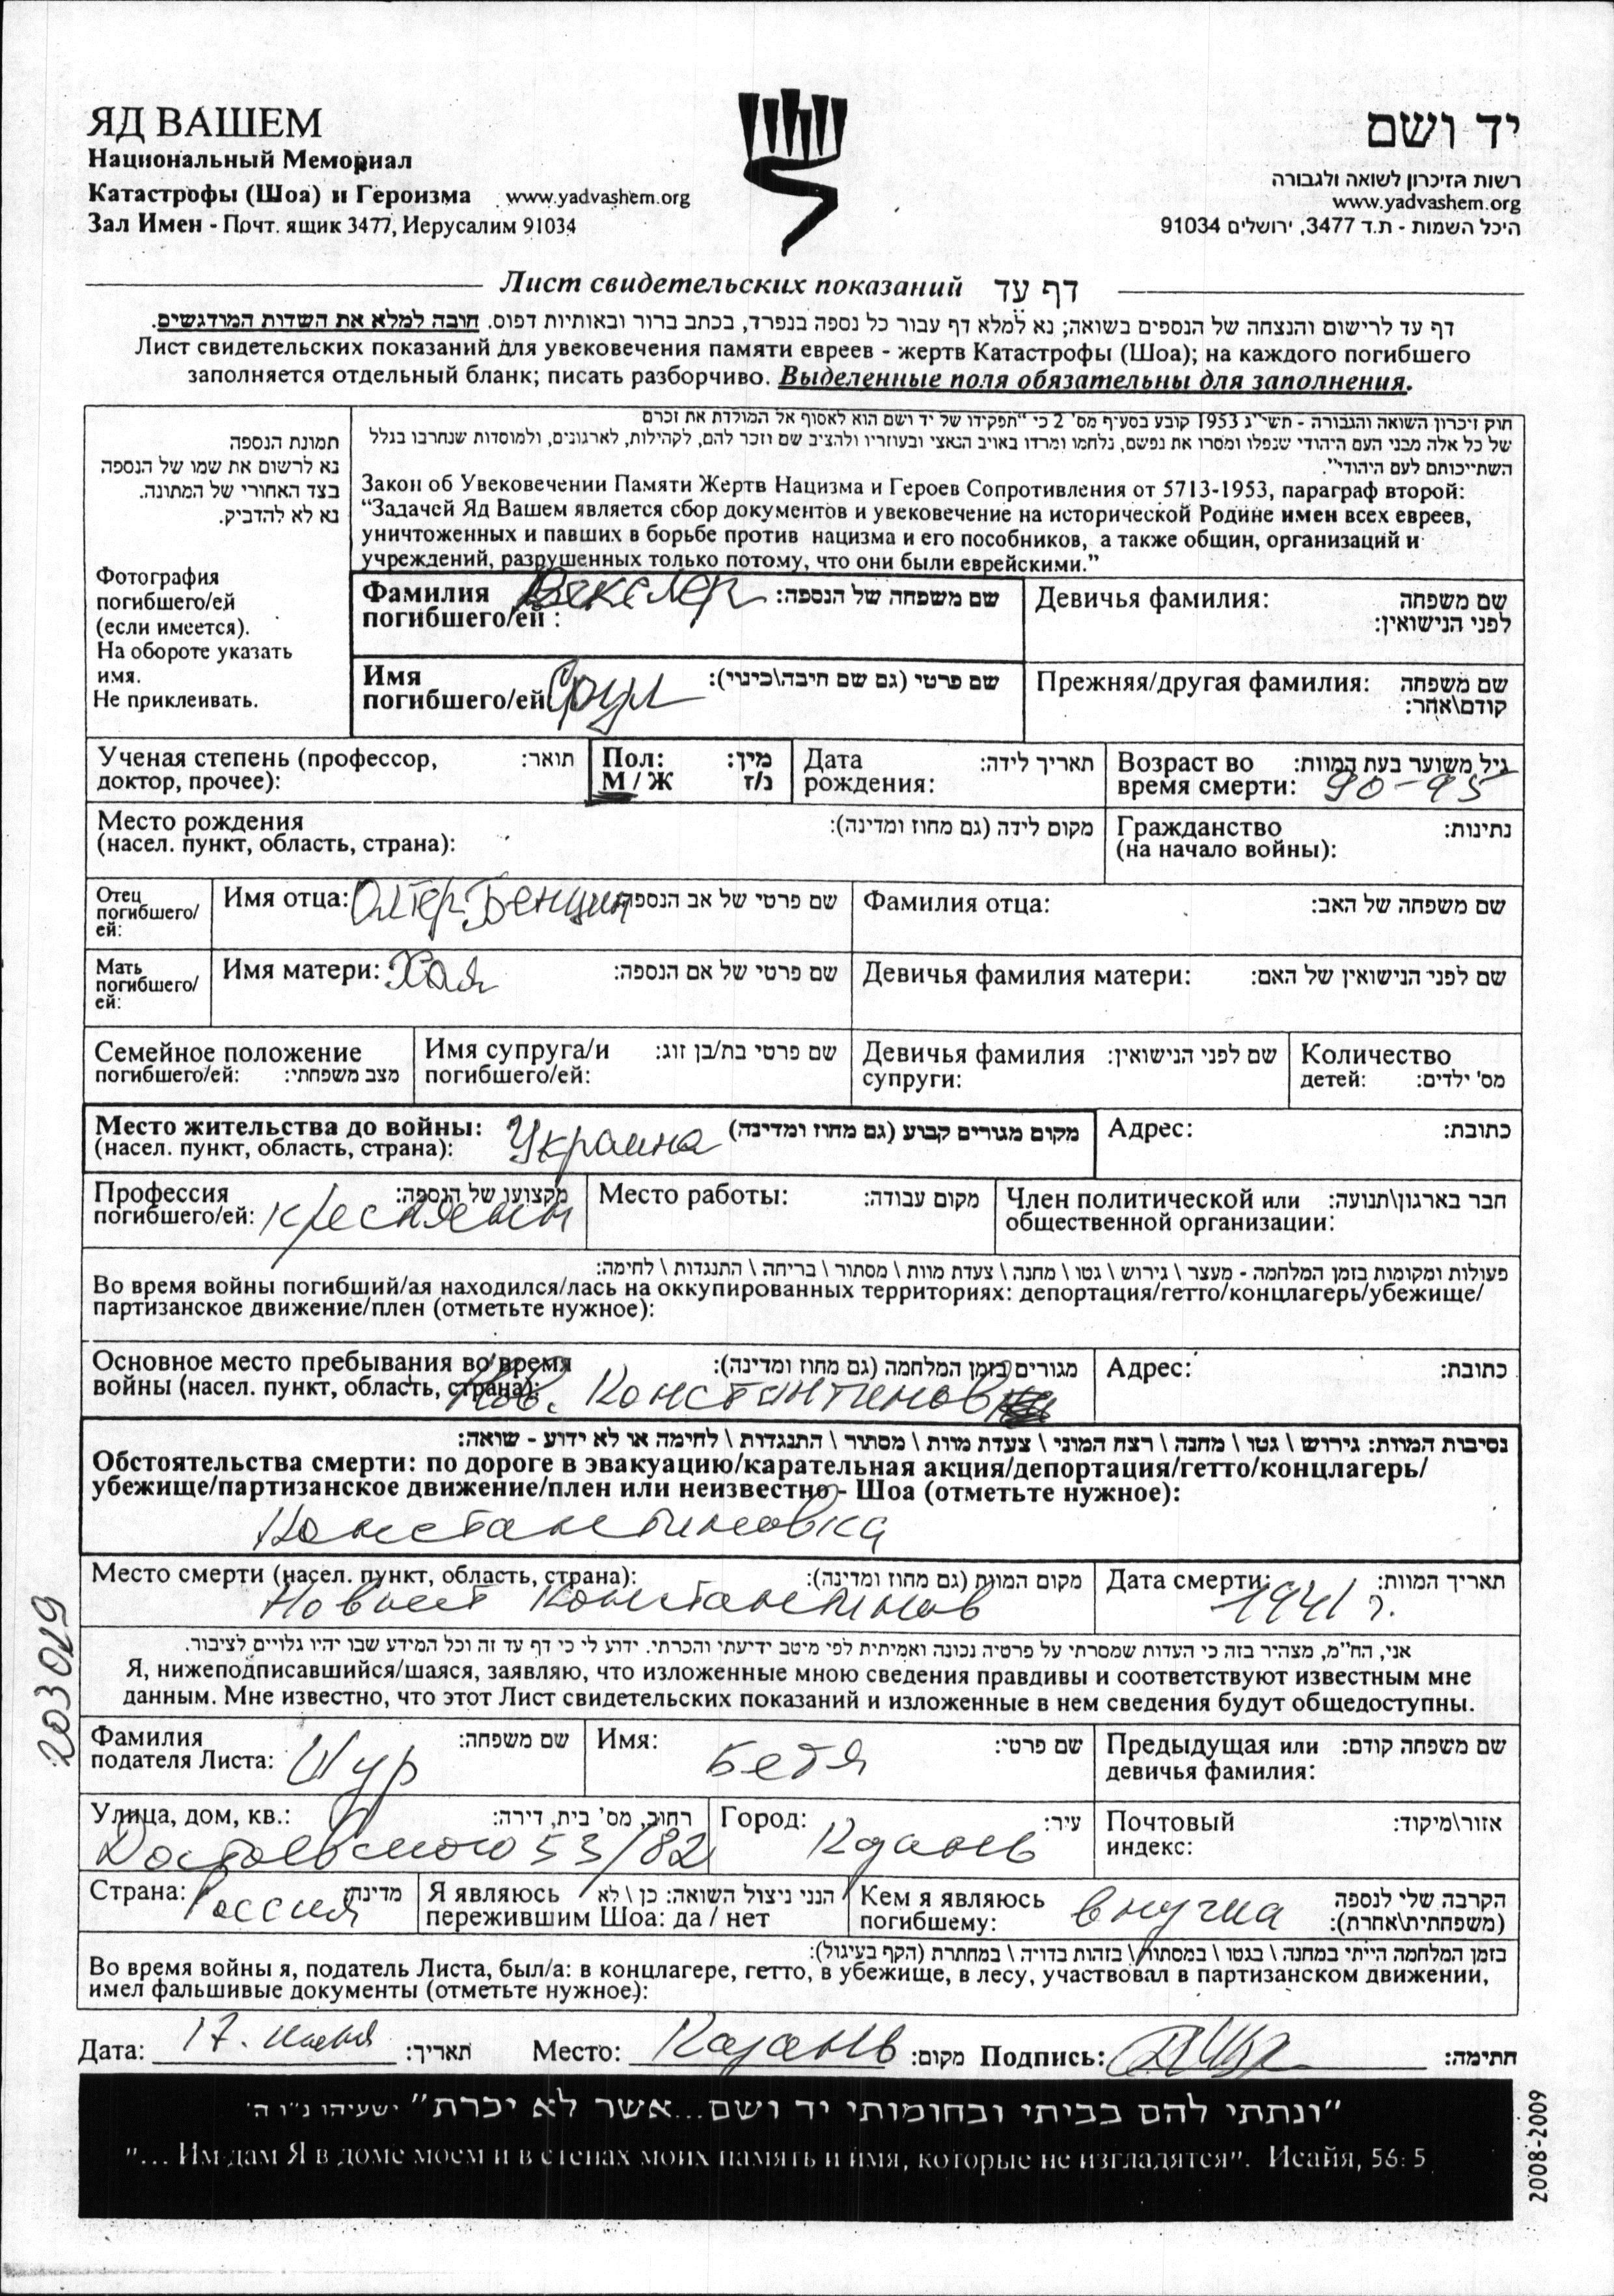 ЯД ВАШЕМ
Национальный Мемориал
Катастрофы (Шоа) и Героизма www.yadvashem.org
Зал Имен - Почт. ящик 3477, Иерусалим 91034
יד ושם
רשות הזיכרון לשואה ולגבורה
www.yadvashem.org
היכל השמות - ת.ד 3477, ירושלים 91034
Лист свидетельских показаний דף עד
דף עד לרישום והנצחה של הנספים בשואה; נא למלא דף עבור כל נספה בנפרד, בכתב ברור ובאותיות דפוס. חובה למלא את השדות המודגשים.
Лист свидетельских показаний для увековечения памяти евреев - жертв Катастрофы (Шоа); на каждого погибшего
заполняется отдельный бланк; писать разборчиво. Выделенные поля обязательны для заполнения.
תמונת הנספה
נא לרשום את שמו של הנספה
בצד האחורי של המתונה.
נא לא להדביק.
Фотография
погибшего/ей
(если имеется).
На обороте указать
имя.
Не приклеивать.
חוק זיכרון השואה והגבורה - תשי"ג 1953 קובע בסעיף מס' 2 כי "תפקידו של יד ושם הוא לאסוף אל המולדת את זכרם
של כל אלה מבני העם היהודי שנפלו ומסרו את נפשם, נלחמו ומרדו באויב הנאצי ובעוזריו ולהציב שם וזכר להם, לקהילות, לארגונים, ולמוסדות שנחרבו בגלל
השתייכותם לעם היהודי".
Закон об Увековечении Памяти Жертв Нацизма и Героев Сопротивления от 5713-1953, параграф второй:
“Задачей Яд Вашем является сбор документов и увековечение на исторической Родине имен всех евреев,
уничтоженных и павших в борьбе против нацизма и его пособников, а также общин, организаций и
учреждений, разрушенных только потому, что они были еврейскими.”
Фамилия Векслер שם משפחה של הנספה:
погибшего/ей :
Девичья фамилия: שם משפחה
לפני הנישואין:
Имя Срул שם פרטי (גם שם חיבה\כינוי):
погибшего/ей
Прежняя/другая фамилия: שם משפחה
קודם\אחר:
Ученая степень (профессор, תואר:
доктор, прочее):
Пол: מין:
М / Ж נ/ז
Дата תאריך לידה:
рождения:
Возраст во גיל משוער בעת המוות:
время смерти: 90-95
Место рождения מקום לידה (גם מחוז ומדינה):
(насел. пункт, область, страна):
Гражданство נתינות:
(на начало войны):
Отец
погибшего/
ей:
Имя отца: Олтер Бенцин שם פרטי של אב הנספה
Фамилия отца: שם משפחה של האב:
Мать
погибшего/
ей:
Имя матери: Хая שם פרטי של אם הנספה:
Девичья фамилия матери: שם לפני הנישואין של האם:
Семейное положение
погибшего/ей: מצב משפחתי:
Имя супруга/и שם פרטי בת/בן זוג:
погибшего/ей:
Девичья фамилия שם לפני הנישואין:
супруги:
Количество
детей: מס' ילדים:
Место жительства до войны: Украина מקום מגורים קבוע (גם מחוז ומדינה)
(насел. пункт, область, страна):
Адрес: כתובת:
Профессия מקצועו של הנספה:
погибшего/ей: крестьянин
Место работы: מקום עבודה:
Член политической или חבר בארגון\תנועה:
общественной организации:
פעולות ומקומות בזמן המלחמה - מעצר \ גירוש \ גטו \ מחנה \ צעדת מוות \ מסתור \ בריחה \ התנגדות \ לחימה:
Во время войны погибший/ая находился/лась на оккупированных территориях: депортация/гетто/концлагерь/убежище/
партизанское движение/плен (отметьте нужное):
Основное место пребывания во время מגורים בזמן המלחמה (גם מחוז ומדינה):
войны (насел. пункт, область, страна): Нов. Константинов
Адрес: כתובת:
נסיבות המוות: גירוש \ גטו \ מחנה \ רצח המוני \ צעדת מוות \ מסתור \ התנגדות \ לחימה או לא ידוע - שואה:
Обстоятельства смерти: по дороге в эвакуацию/карательная акция/депортация/гетто/концлагерь/
убежище/партизанское движение/плен или неизвестно - Шоа (отметьте нужное):
Константиновка
Место смерти (насел. пункт, область, страна): מקום המוות (גם מחוז ומדינה):
Константинов
Дата смерти: תאריך המוות:
1941 г.
אני, הח"מ, מצהיר בזה כי העדות שמסרתי על פרטיה נכונה ואמיתית לפי מיטב ידיעתי והכרתי. ידוע לי כי דף עד זה וכל המידע שבו יהיו גלויים לציבור.
Я, нижеподписавшийся/шаяся, заявляю, что изложенные мною сведения правдивы и соответствуют известным мне
данным. Мне известно, что этот Лист свидетельских показаний и изложенные в нем сведения будут общедоступны.
Фамилия שם משפחה:
подателя Листа: Шур
Имя: Бетя שם פרטי:
Предыдущая или שם משפחה קודם:
девичья фамилия:
Улица, дом, кв.: רחוב, מס' בית, דירה:
Достоевского 53/82
Город: Казань עיר:
Почтовый אזור\מיקוד:
индекс:
Страна: Россия מדינה:
Я являюсь הנני ניצול השואה: כן \ לא
пережившим Шоа: да / нет
Кем я являюсь внучка הקרבה שלי לנספה
погибшему: (משפחתית\אחרת):
בזמן המלחמה הייתי במחנה \ בגטו \ במסתור \ בזהות בדויה \ במחתרת (הקף בעיגול):
Во время войны я, податель Листа, был/а: в концлагере, гетто, в убежище, в лесу, участвовал в партизанском движении,
имел фальшивые документы (отметьте нужное):
Дата: 17. תאריך: Место: Казань מקום: Подпись: חתימה:
"ונתתי להם בביתי ובחומותי יד ושם...אשר לא יכרת" ישעיהו נ"ו ה'
"... Им дам Я в доме моем и в стенах моих память и имя, которые не изгладятся". Исайя, 56: 5
203029
2008-2009